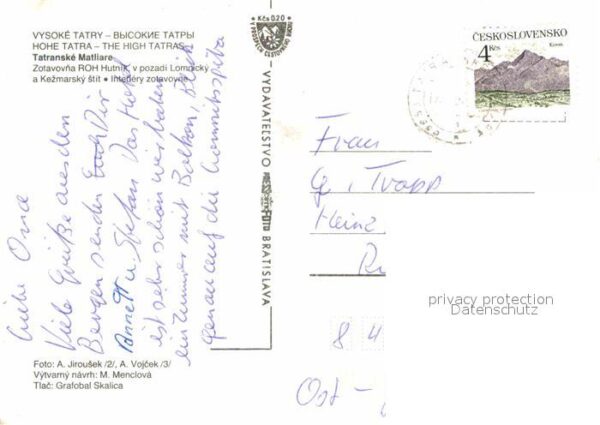 VYSOKÉ TATRY – ВЫСОКИЕ ТАТРЫ
HOHE TATRA – THE HIGH TATRAS
Tatranské Matliare
Zotavovňa ROH Hutník, v pozadí Lomnický
a Kežmarský štít • Interiéry zotavovne
Kčs 0,20
VYDAVATEĽSTVO
FOTO BRATISLAVA
ČESKOSLOVENSKO
4 Kčs
Kriváň
Liebe Oma
Viele Grüße aus den
Bergen senden Dir
Annett u. Stefan. Das Hotel
ist sehr schön wir haben
ein Zimmer mit Balkon, Blick
genau auf die Lomnitzspitze
Frau
G. Trapp
Heinz
8 4
Ost –
Foto: A. Jiroušek /2/, A. Vojček /3/
Výtvarný návrh: M. Menclová
Tlač: Grafobal Skalica
privacy protection
Datenschutz